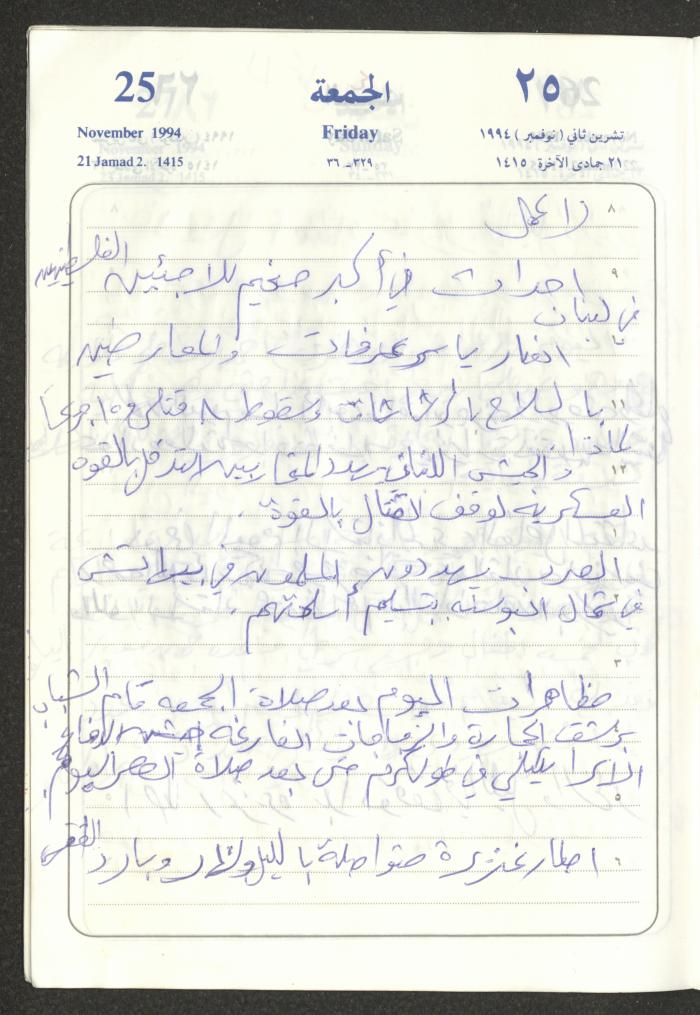 25 الجمعة ٢٥
November 1994 Friday تشرين ثاني ( نوفمبر ) ١٩٩٤
21 Jamad 2. 1415 ٣٢٩ــ٣٦ ٢١ جمادى الآخرة ، ١٤١٥
٨
٩ احداث في أكبر مخيم للاجئين الفلسطينيين
في لبنان
١٠ انصار ياسر عرفات والمعارضين
١١ بالسلاح بالرشاشات وسقوط ٨ قتلى و ١٥ جريحا
لماذا!
١٢ والجيش اللبناني يهدد المتحاربين لاتدخل بالقوه
العسكرية لوقف القتال بالقوة .
١ الصرب يهددون المسلمون في بيهاتش
٢ في شمال البوسنه بتسليم أسلحتهم .
٣
مظاهرات اليوم بعد صلاة الجمعه قام الشباب
٤ برشق الحجارة والزجاجات الفارغه جيش الدفاع
الاسرائيلي في طولكرم حتى بعد صلاة العصر اليوم .
٥
٦ امطار غزيرة متواصلة بالليل والنهار وبارد